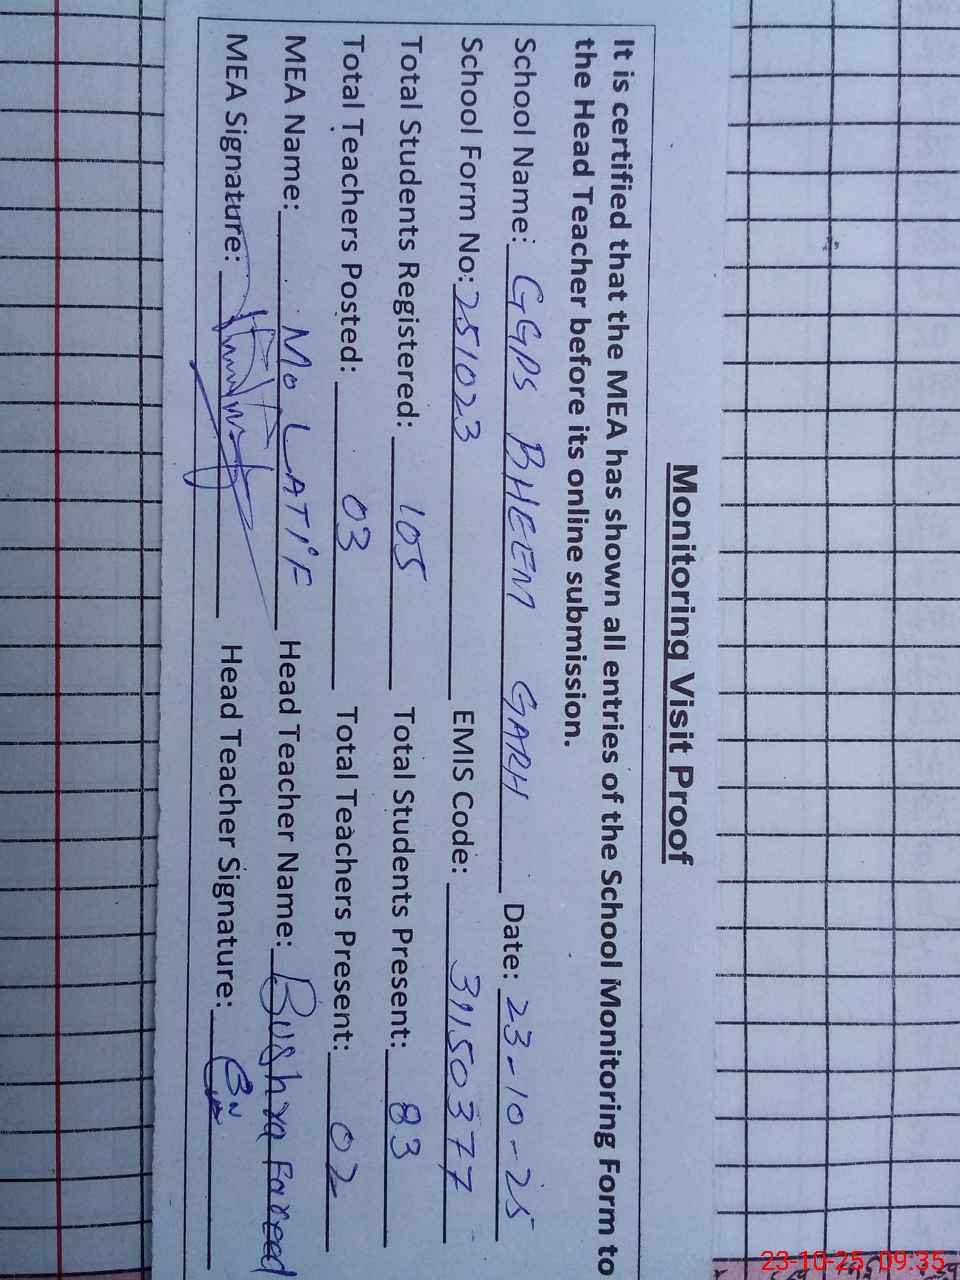 Monitoring Visit Proof
It is certified that the MEA has shown all entries of the School Monitoring Form to
the Head Teacher before its online submission.
School Name: GGPS BHEEM GARH Date: 23-10-25
School Form No: 251023 EMIS Code: 31150377
Total Students Registered: 105 Total Students Present: 83
Total Teachers Posted: 03 Total Teachers Present: 02
MEA Name: Mo LATIF Head Teacher Name: Bushra Fareed
MEA Signature: Head Teacher Signature:
23-10-25, 09:35